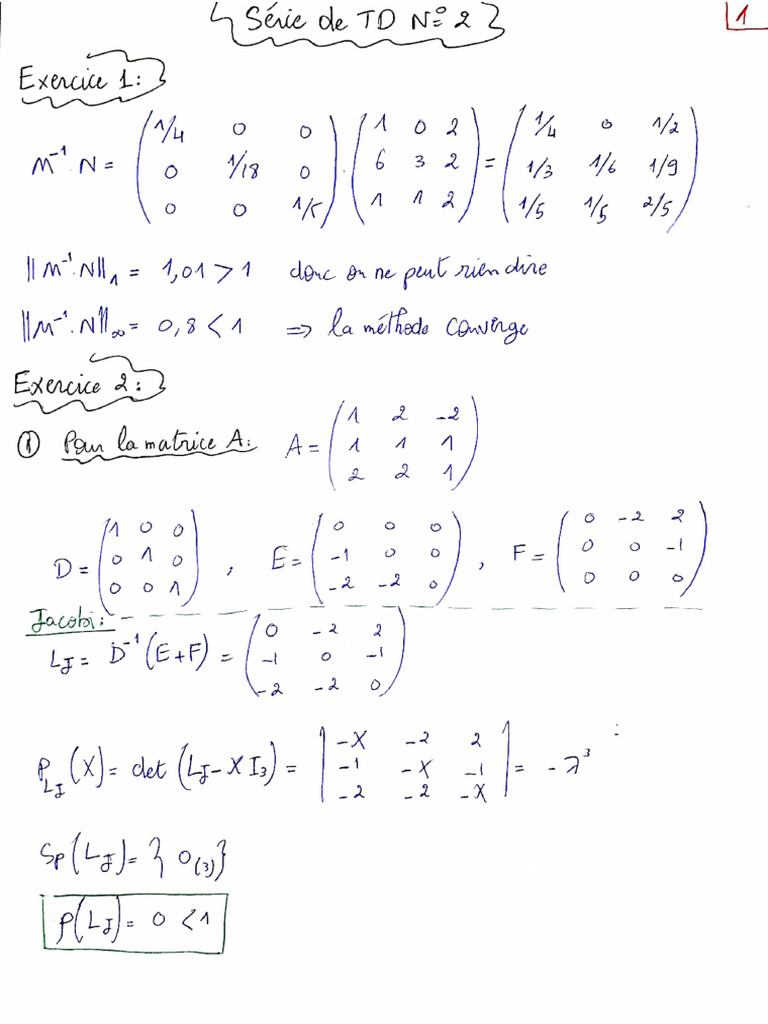 Série de TD N° 2
1
Exercice 1:
M⁻¹.N = (1/4 0 0; 0 1/18 0; 0 0 1/5) . (1 0 2; 6 3 2; 1 1 2) = (1/4 0 1/2; 1/3 1/6 1/9; 1/5 1/5 2/5)
||M⁻¹.N||₁ = 1,01 > 1 donc on ne peut rien dire
||M⁻¹.N||∞ = 0,8 < 1 ⇒ la méthode converge
Exercice 2:
① Pour la matrice A: A = (1 2 -2; 1 1 1; 2 2 1)
D = (1 0 0; 0 1 0; 0 0 1), E = (0 0 0; -1 0 0; -2 -2 0), F = (0 -2 2; 0 0 -1; 0 0 0)
Jacobi:
L_J = D⁻¹(E+F) = (0 -2 2; -1 0 -1; -2 -2 0)
P_{L_J}(X) = det(L_J - X I₃) = |-X -2 2; -1 -X -1; -2 -2 -X| = -λ³
Sp(L_J) = {0₍₃₎}
ρ(L_J) = 0 < 1